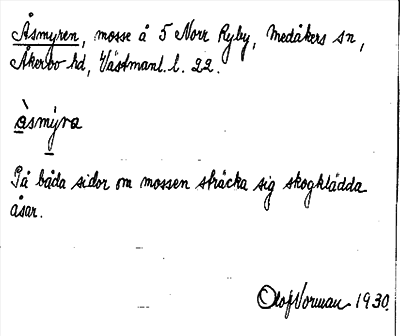 Åsmyren, mosse å 5 Norr Ryby, Medåkers sn,
Åkerbo hd, Västmanl. l. 22.
àsmýra
På båda sidor om mossen sträcka sig skogklädda
åsar.
Olof Vorman 1930.